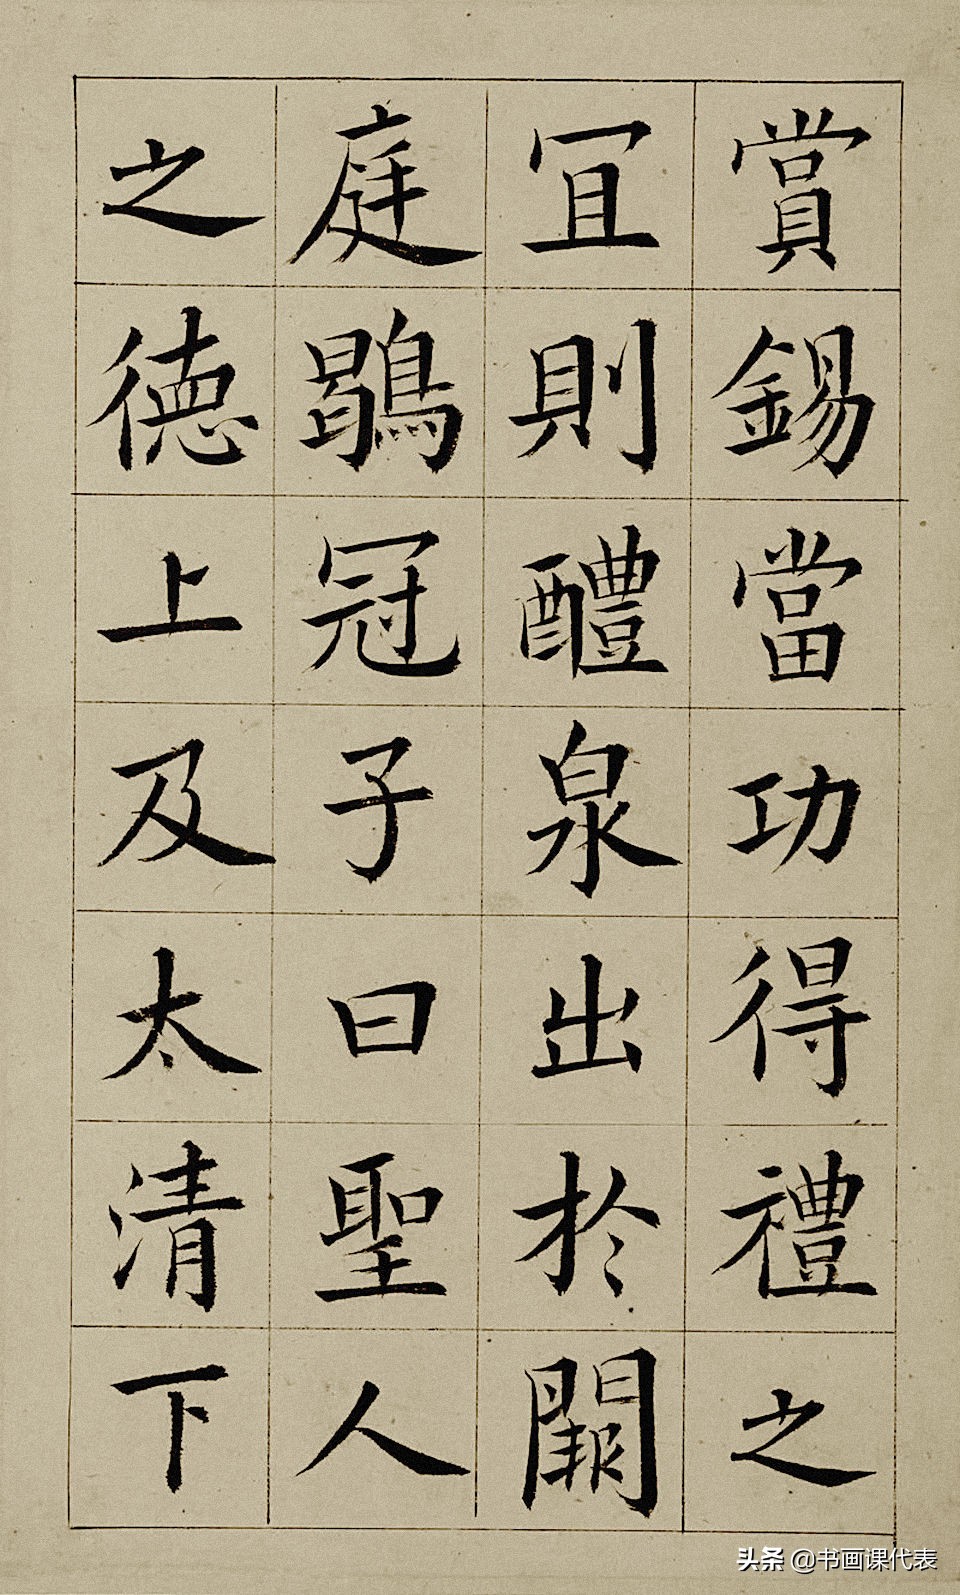 賞錫當功得禮之
冝則醴泉出於闕
庭鶡冠子曰聖人
之徳上及太清下
头条 @书画课代表